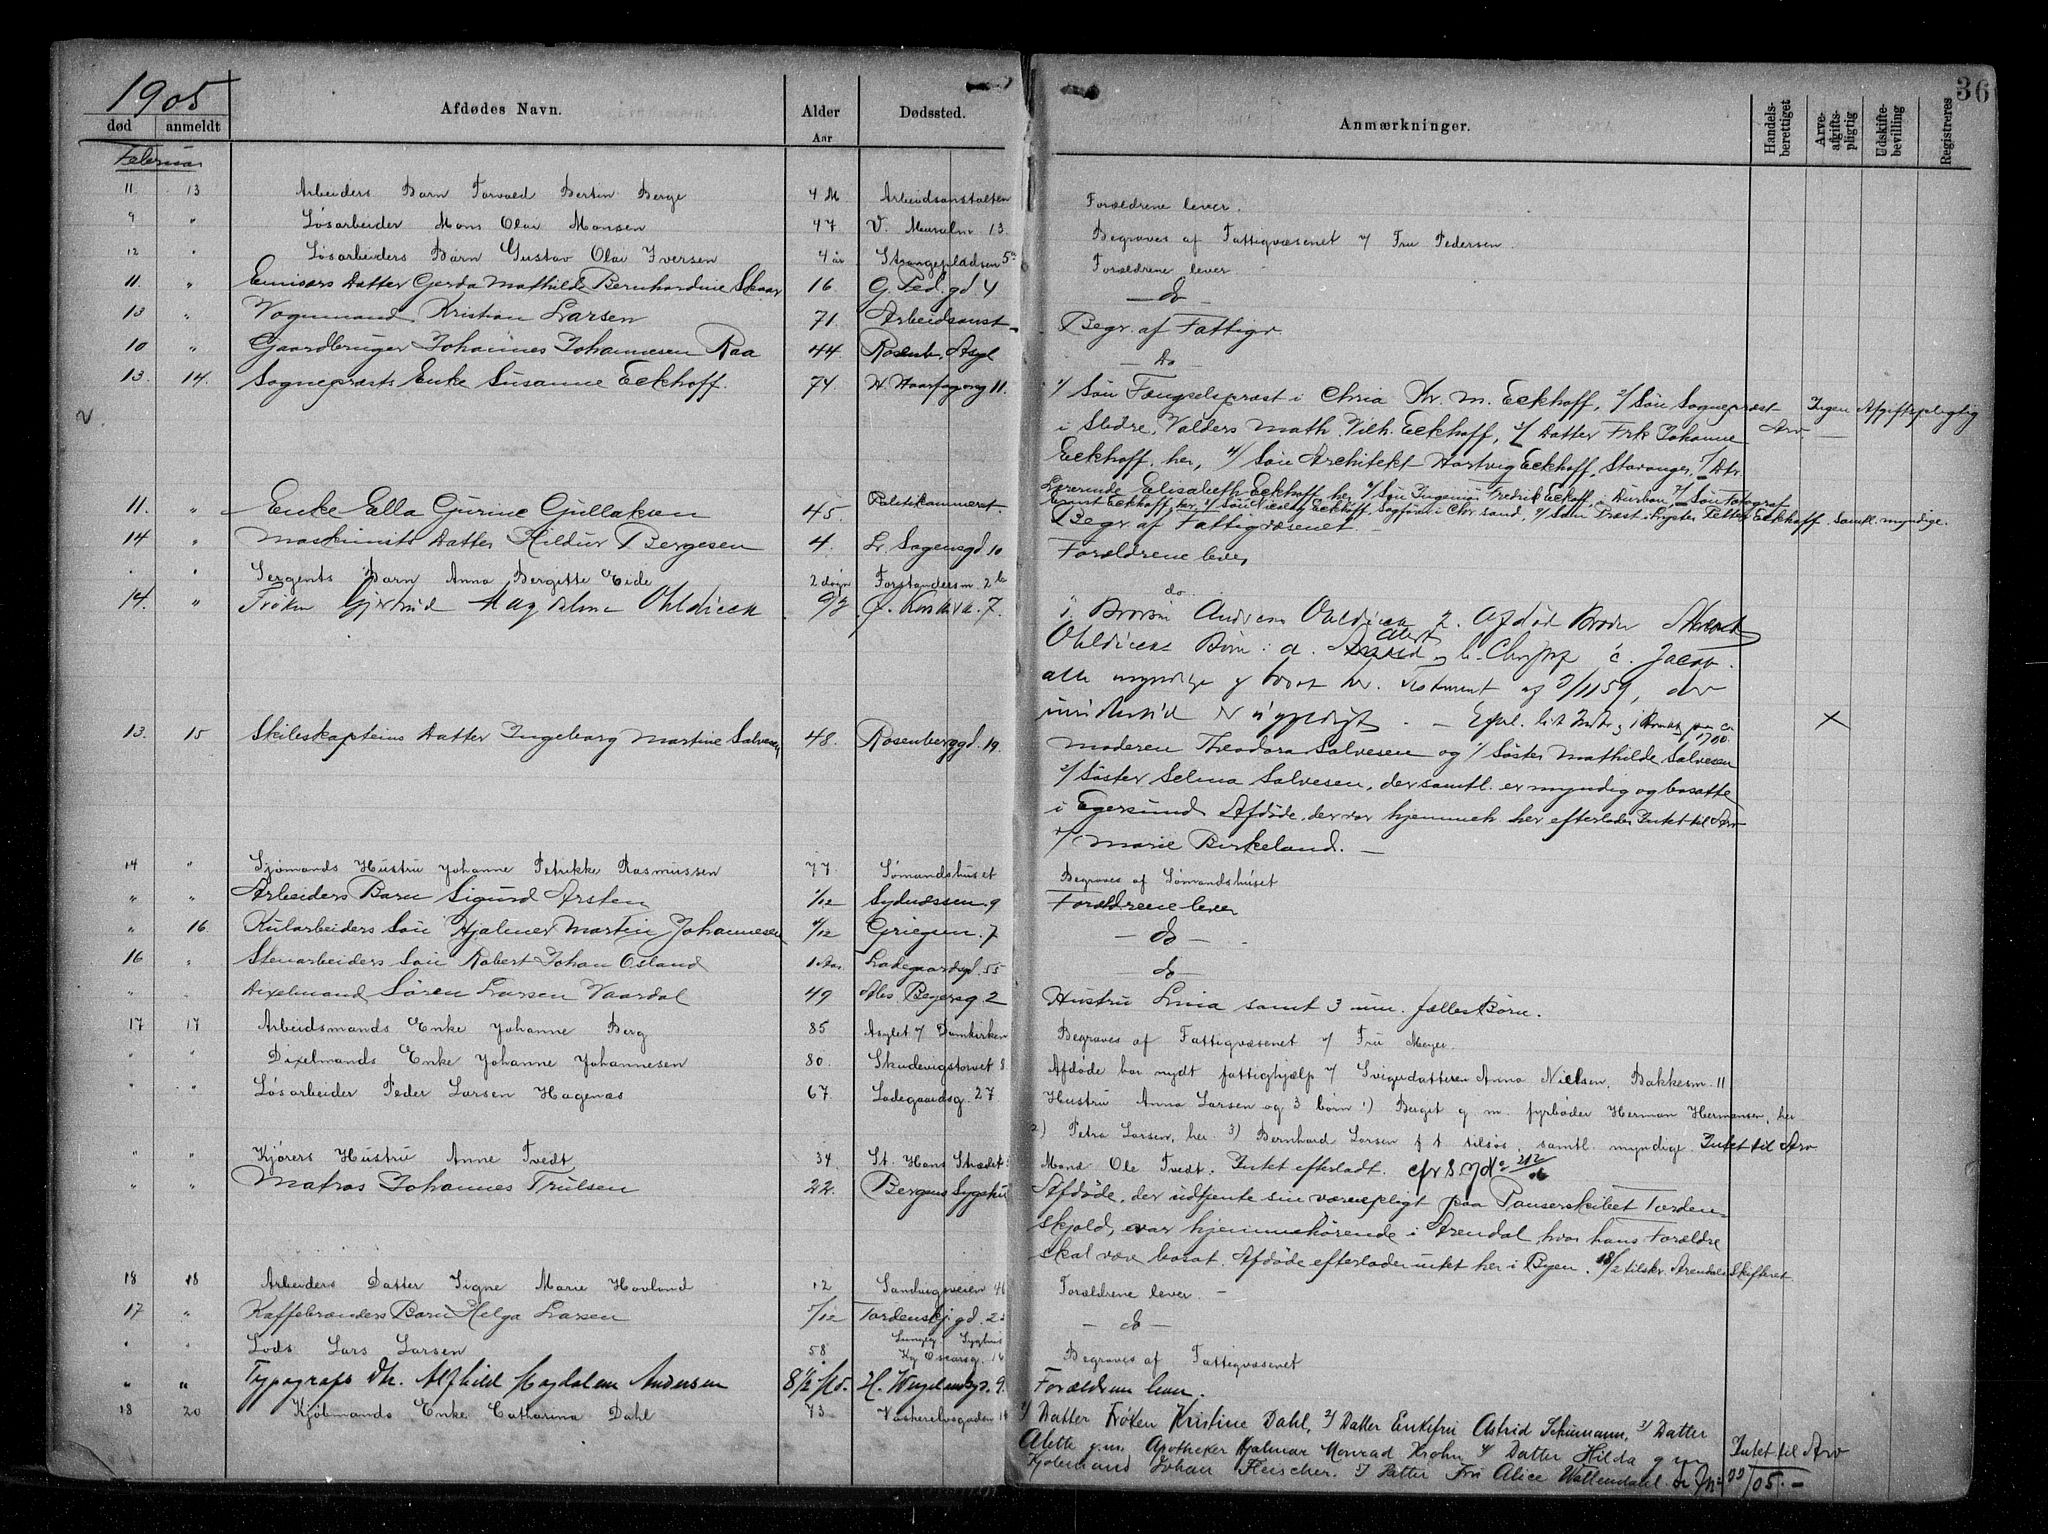 1905
36
død anmeldt Afdødes Navn. Alder Aar Dødssted. Anmærkninger. Handels-berettiget Arve-afgifts-pligtig Udskifte-bevilling Registreres
Februar
11 13 Arbeiders Barn Torvald Bertin Berge 4 M Arbeidsanstalten Forældrene lever.
9 " Løsarbeider Mons Olai Monsen 47 V. Muralm 13 Begraves af Fattigvæsenet v/ Fru Pedersen.
12 " Løsarbeiders Barn Gustav Olai Iversen 4 år Strangepladsen 5 Forældrene lever
11. " Datter Gerda Mathilde Bernhardine Skaar 16 G. Ped. gd. 4 — do —
13 " Vognmand Kristian Larsen 71 Arbeidsanst Begr. af Fattigv
10 " Gaardbruger Johannes Johannesen Raa 44 Rosenb. Asyl — Do —
13. 14. Sogneprests Enke Susanne Eckhoff. 74 H. Haarfagresg 11. 1/ Søn Fængselsprest i Chria Kr. M. Eckhoff, 2/ Søn Sogneprest Ingen Afgiftspligtig
i Slidre, Valders Math. Vilh. Eckhoff, 3/ Datter Frk Johanne Arv —
Eckhoff, her, 4/ Søn Architekt Hartvig Eckhoff, Stavanger, 5/ Dtr
Lærerinde Elisabeth Eckhoff her 6/ Søn Ingeniør Fredrik Eckhoff, i Durban 7/ Søn Fotograf
Ernst Eckhoff, her, 8/ Søn Eckhoff, Sagfører i Chr.sand, 9/ Søn Prest Eckhoff. Samtl. myndige.
11. " Enke Ella Gurine Gullaksen 45. Politikammeret. Begr. af Fattigvæsenet
14 " Maskinists Datter Hildur Bergesen 4. Lr. Sagensgd. 10 Forældrene lever
" " Sergents Barn Anna Bergitte Eide 2 døgn Forstandersm. 2 do.
14. " Frøken Gjertrud Magdalene Ohldieck 7. 1, Brorsøn Andreas Ohldieck 2. Afdød Broder
Ohldiecks Børn: a. b. c. Jacob.
alle myndige og bosat her. Testament af 3/11 59, der
13. 15 Skibskapteins Datter Ingeborg Martine Salvesen 48. Rosenberggd. 19. Moderen Theodora Salvesen og 1/ Søster Mathilde Salvesen
2/ Søster Selma Salvesen, der samtl. er myndig og bosatte
i Egersund Afdøde, der var hjemmeh her efterlader Intet til Arv
v/ Marie Birkeland. —
14 " Sjømands Hustru Johanne Petrikke Rasmussen 77 Sømandshuset Begraves af Sømandshuset
" " Arbeiders Barn Sigurd Arsten 1/12 Sydnæssm. 9 Forældrene lever
" 16. Kularbeiders Søn Hjalmar Martin Johannesen 4/12 Griegsm. 7 — do —
16 " Stenarbeiders Søn Robert Johan Osland 1 Aar Ladegaardsgd. 55 — do —
" " Dixelmand Søren Larsen Vaardal 49 Abs. Beyersg 2 Hustru Lina samt 3 um. fælles Børn.
17 17 Arbeidsmands Enke Johanne Berg 85 Asylet v/ Domkirken Begraves af Fattigvæsenet v/ Fru Meyer.
" " Dixelmands Enke Johanne Johannesen 80. Skudevigstorvet 8 Afdøde har nydt fattighjælp v/ Svigerdatteren Anna Nielsen, Bakkesm. 11
" " Løsarbeider Peder Larsen Hagenæs 67 Ladegaardsg. 27 Hustru Anna Larsen og 3 børn 1) Berget g. m. fyrbøder Herman Hermansen, her
2) Petra Larsen, her 3) Bernhard Larsen f. t. tilsøs, samtl. myndige. Intet til Arv
" " Kjørers Hustru Anne Tvedt 34 St. Hans Strædet Mand Ole Tvedt. Intet efterladt.
" " Matros Johannes Trulsen 22. Bergens Sygehus Afdøde, der udtjente sin værnepligt paa Panserskibet Torden-
skjold, var hjemmehørende i Arendal, hvor hans Forældre
skal være bosat. Afdøde efterlader intet her i Byen. 18/2 tilskr. Arendals Skifteret
18 18 Arbeiders Datter Signe Marie Hovlund 12 Sandvigsveien 46 Forældrene lever —
17 " Kaffebrænders Barn Helga Larsen 5/12 Tordenskj. gd. — do —
" " Lods Lars Larsen 58 Lungeg. Syghus Kg Oscarsg. 16 Begraves af Fattigvæsenet
" " Typografs Dtr. Alfhild Magdalene Andersen 8 1/2 Md. H. Wergelandsgd. 9. Forældrene lever.
18 20 Kjøbmands Enke Catharina Dahl 73 Vaskerelvsgaden 1/ Datter Frøken Kristine Dahl, 2/ Datter Enkefru Astrid Schumann, 3/ Datter
Alette g.m. Apotheker Hjalmar Monrad Krohn 4/ Datter Hilda g m Intet til Arv
Kjøbmand Johan Fleischer. 5/ Datter Fru Alice Wallendahl. /05. —